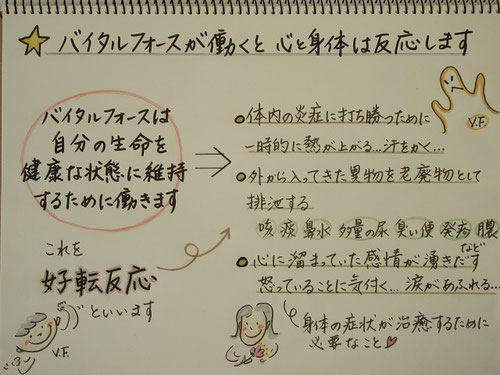 バイタルフォースが働くと 心と身体は反応します
バイタルフォースは
自分の生命を
健康な状態に維持
するために働きます
これを
好転反応
といいます
V.F.
V.F.
●体内の炎症に打ち勝つために
一時的に熱が上がる…汗をかく…
●外から入ってきた異物を老廃物として
排泄する
咳 痰 鼻水 多量の尿 臭い便 発疹 膿
など
●心に溜まっていた感情が湧きだす
怒っていることに気付く… 涙があふれる…
身体の症状が治癒するために
必要なこと♡